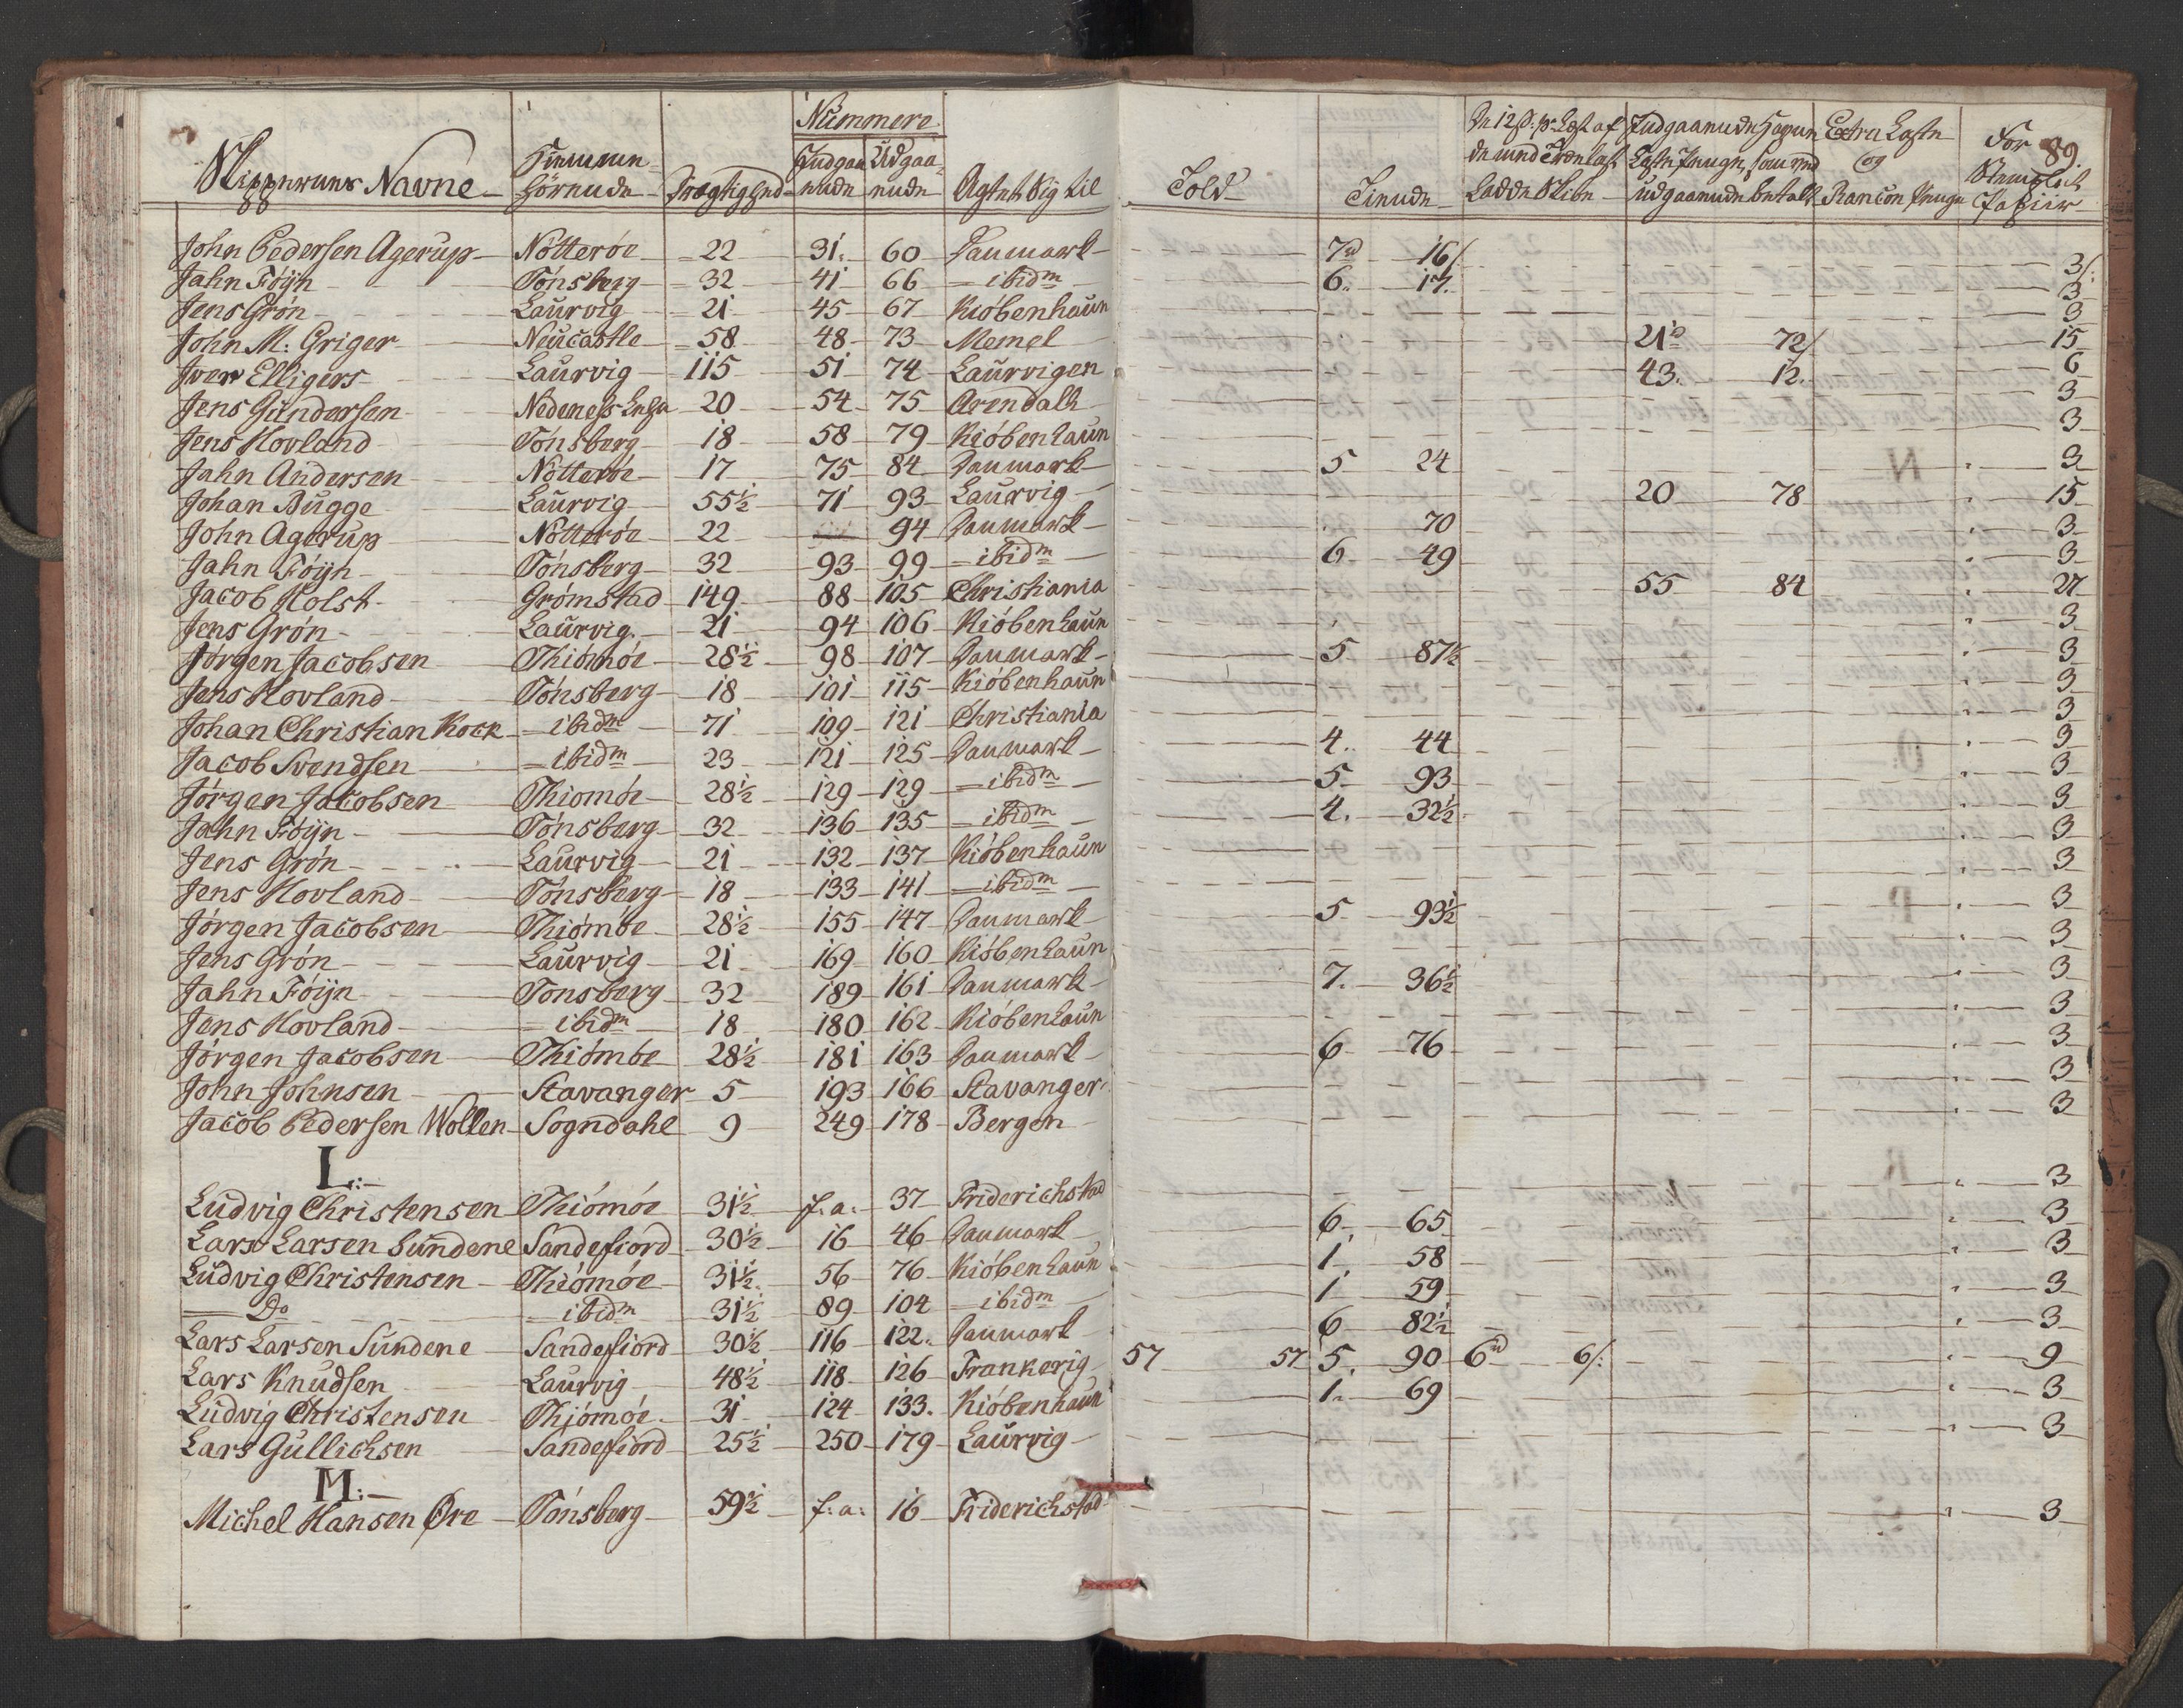 Nummere.
Skippernes Navne
Hiemmehörende
Drægtighed
Indgaaende
Udgaaende
Agtet sig til
Told
Tiende
De 12 s: pr Læst af de med Trælast Ladde Skibe
Indgaaende Havne Laste Penge, som ved udgaaende betalt
Extra Laste og Rancon Penge
For Stemplet Papiir
89.
John Pedersen Agerup Nötteröe 22 31. 60 Danmark 7rd 16s 3s:
Jahn Föÿn Tönsberg 32 41 66 ibidm 6. 17. 3
Jens Grön Laurvig 21 45 67 Kiöbenhaun 3
John M: Griger Neucastle 58 48 73 Memel 21rd 72s 15
Iver Elligers Laurvig 115 51 74 Laurvigen 43. 12. 6
Jens Gundersen Nedenes Lehn 20 54 75 Arendall 3
Jens Hovland Tönsberg 18 58 79 Kiöbenhaun 3
Jahn Andersen Nötteröe 17 75 84 Danmark 5 24 3
Johan Bugge Laurvig 55½ 71 93 Laurvig 20 78 15
John Agerup Nötteröe 22 94 Danmark 70 3
Jahn Föÿn Tönsberg 32 93 99 ibidm 6 49 3
Jacob Holst Grömstad 149 88 105 Christiania 55 84 27
Jens Grön Laurvig. 21 94 106 Kiöbenhaun 3
Jörgen Jacobsen Thiömöe 28½ 98 107 Danmark 5 87½ 3
Jens Hovland Tönsberg 18 101 115 Kiöbenhaun 3
Johan Christian Kock ibidm 71 109 121 Christiania 3
Jacob Svendsen ibidm 23 121 125 Danmark 4. 44 3
Jörgen Jacobsen Thiomöe 28½ 129 129 ibidm 5 93 3
Jahn Föijn Tönsberg 32 136 135 ibidm 4. 32½ 3
Jens Grön Laurvig 21 132 137 Kiöbenhaun 3
Jens Hovland Tönsberg 18 133 141 ibidm 3
Jörgen Jacobsen Thiömöe 28½ 155 147 Danmark 5 93½ 3
Jens Grön Laurvig 21 169 160 Kiöbenhaun 3
Jahn Föijn Tonsberg 32 189 161 Danmark 7. 36½ 3
Jens Hovland ibidm 18 180 162 Kiöbenhaun 3
Jörgen Jacobsen Thiömöe 28½ 181 163 Danmark 6 76 3
John Johnsen Stavanger 5 193 166 Stavanger 3
Jacob Pedersen Wollen Sogndahl 9 249 178 Bergen 3
L:
Ludvig Christensen Thiömöe 31½ f: a: 37 Friderichstad 3
Lars Larsen Sundene Sandefiord 30½ 16 46 Danmark 6 65 3
Ludvig Christensen Thiömöe 31½ 56 76 Kiöbenhaun 1 58 3
Do ibidm 31½ 89 104 ibidm 1 59 3
Lars Larsen Sundene Sandefiord 30½ 116 122. Danmark 6 82½ 3
Lars Knudsen Laurvig 48½ 118 126 Frankerig 57 57 5. 90 6rd 6s: 9
Ludvig Christensen Thiömöe 31 124 133. Kiöbenhaun 1. 69 3
Lars Gullichsen Sandefiord 25½ 250 179 Laurvig 3
M:
Michel Hansen Öre Tönsberg 59½ f: a: 16 Friderichstad 3